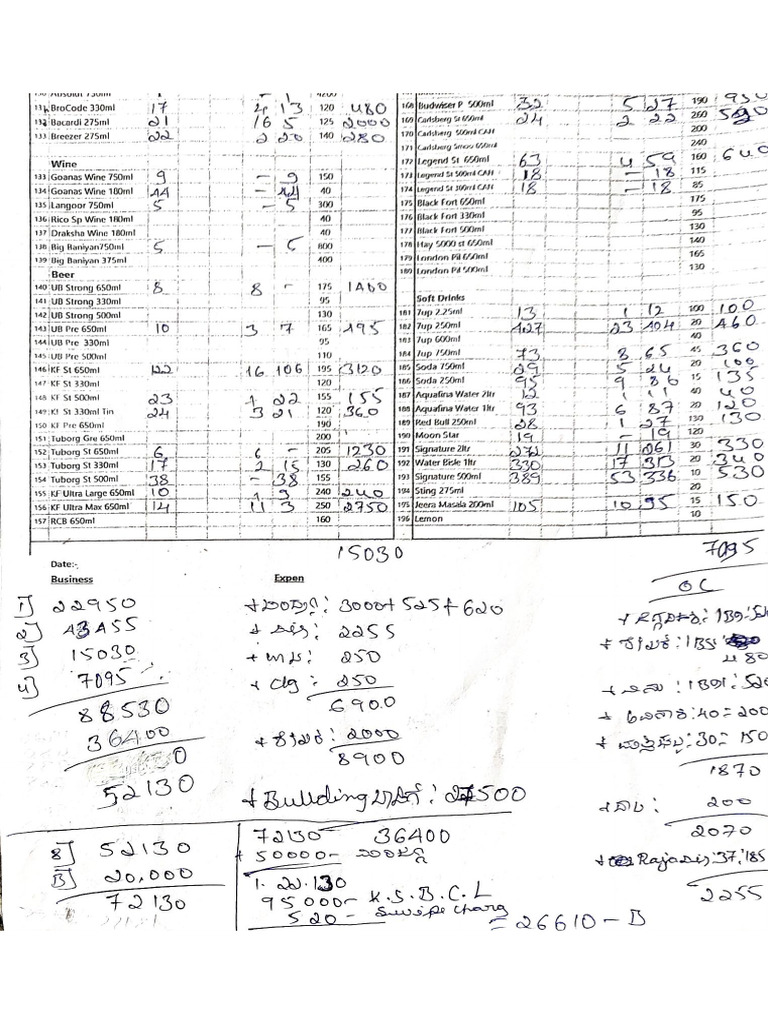 131 BroCode 330ml 17 4 13 120 480
132 Bacardi 275ml 21 16 5 125 2000
133 Breezer 275ml 22 2 20 140 280
Wine
133 Goanas Wine 750ml 9 - 9 150
134 Goanas Wine 180ml 44 - 44 40
135 Langoor 750ml 5 - 5 300
136 Rico Sp Wine 180ml 40
137 Draksha Wine 180ml 40
138 Big Baniyan750ml 5 - 5 800
139 Big Baniyan 375ml 400
Beer
140 UB Strong 650ml 8 8 - 175 1400
141 UB Strong 330ml 95
142 UB Strong 500ml 130
143 UB Pre 650ml 10 3 7 165 495
144 UB Pre 330ml 95
145 UB Pre 500ml 110
146 KF St 650ml 122 16 106 195 3120
147 KF St 330ml 120
148 KF St 500ml 23 1 22 155 155
149 Kf St 330ml Tin 24 3 21 120 360
150 KF Pre 650ml 190
151 Tuborg Gre 650ml 200
152 Tuborg St 650ml 6 6 - 205 1230
153 Tuborg St 330ml 17 2 15 130 260
154 Tuborg St 500ml 38 - 38 155
155 KF Ultra Large 650ml 10 1 9 240 240
156 KF Ultra Max 650ml 14 11 3 250 2750
157 RCB 650ml 160
15030
168 Budwiser P 500ml 32 5 27 190 950
169 Carlsberg St 650ml 24 2 22 260 520
170 Carlsberg 500ml CAN 200
171 Carlsberg Smou 650ml 240
172 Legend St 650ml 63 4 59 160 640
173 Legend St 500ml CAN 18 - 18 115
174 Legend St 300ml CAN 18 - 18 85
175 Black Fort 650ml 175
176 Black Fort 330ml 95
177 Black Fort 500ml 130
178 Hay 5000 st 650ml 140
179 London Pil 650ml 165
180 London Pil 500ml 130
Soft Drinks
181 7up 2.25ml 13 1 12 100 100
182 7up 250ml 127 23 104 20 460
183 7up 600ml 40
184 7up 750ml 73 8 65 45 360
185 Soda 750ml 29 5 24 20 100
186 Soda 250ml 95 9 86 15 135
187 Aquafina Water 2ltr 12 1 11 40 40
188 Aquafina Water 1ltr 93 6 87 20 120
189 Red Bull 250ml 28 1 27 130 130
190 Moon Star 19 - 19 120
191 Signature 2ltr 272 11 261 30 330
192 Water Bisle 1ltr 330 17 313 20 340
193 Signature 500ml 389 53 336 10 530
194 Sting 275ml 20
195 Jeera Masala 200ml 105 10 95 15 150
196 Lemon 10
7095
Date:-
Business
1] 22950
2] 43455
3] 15030
4] 7095
88530
36400
52130
8] 52130
B] 20,000
72130
Expen
3000+525+620
2255
250
250
6900
2000
8900
+ Building ಬಾಡಿಗೆ: 27500
36400
72130
+ 50000-
1.22.130
95000- K.S.B.C.L
520- Swipe Charg
= 26610 - B
OC
480
40=200
30=150
1870
200
2070
Raja 37,185
2255